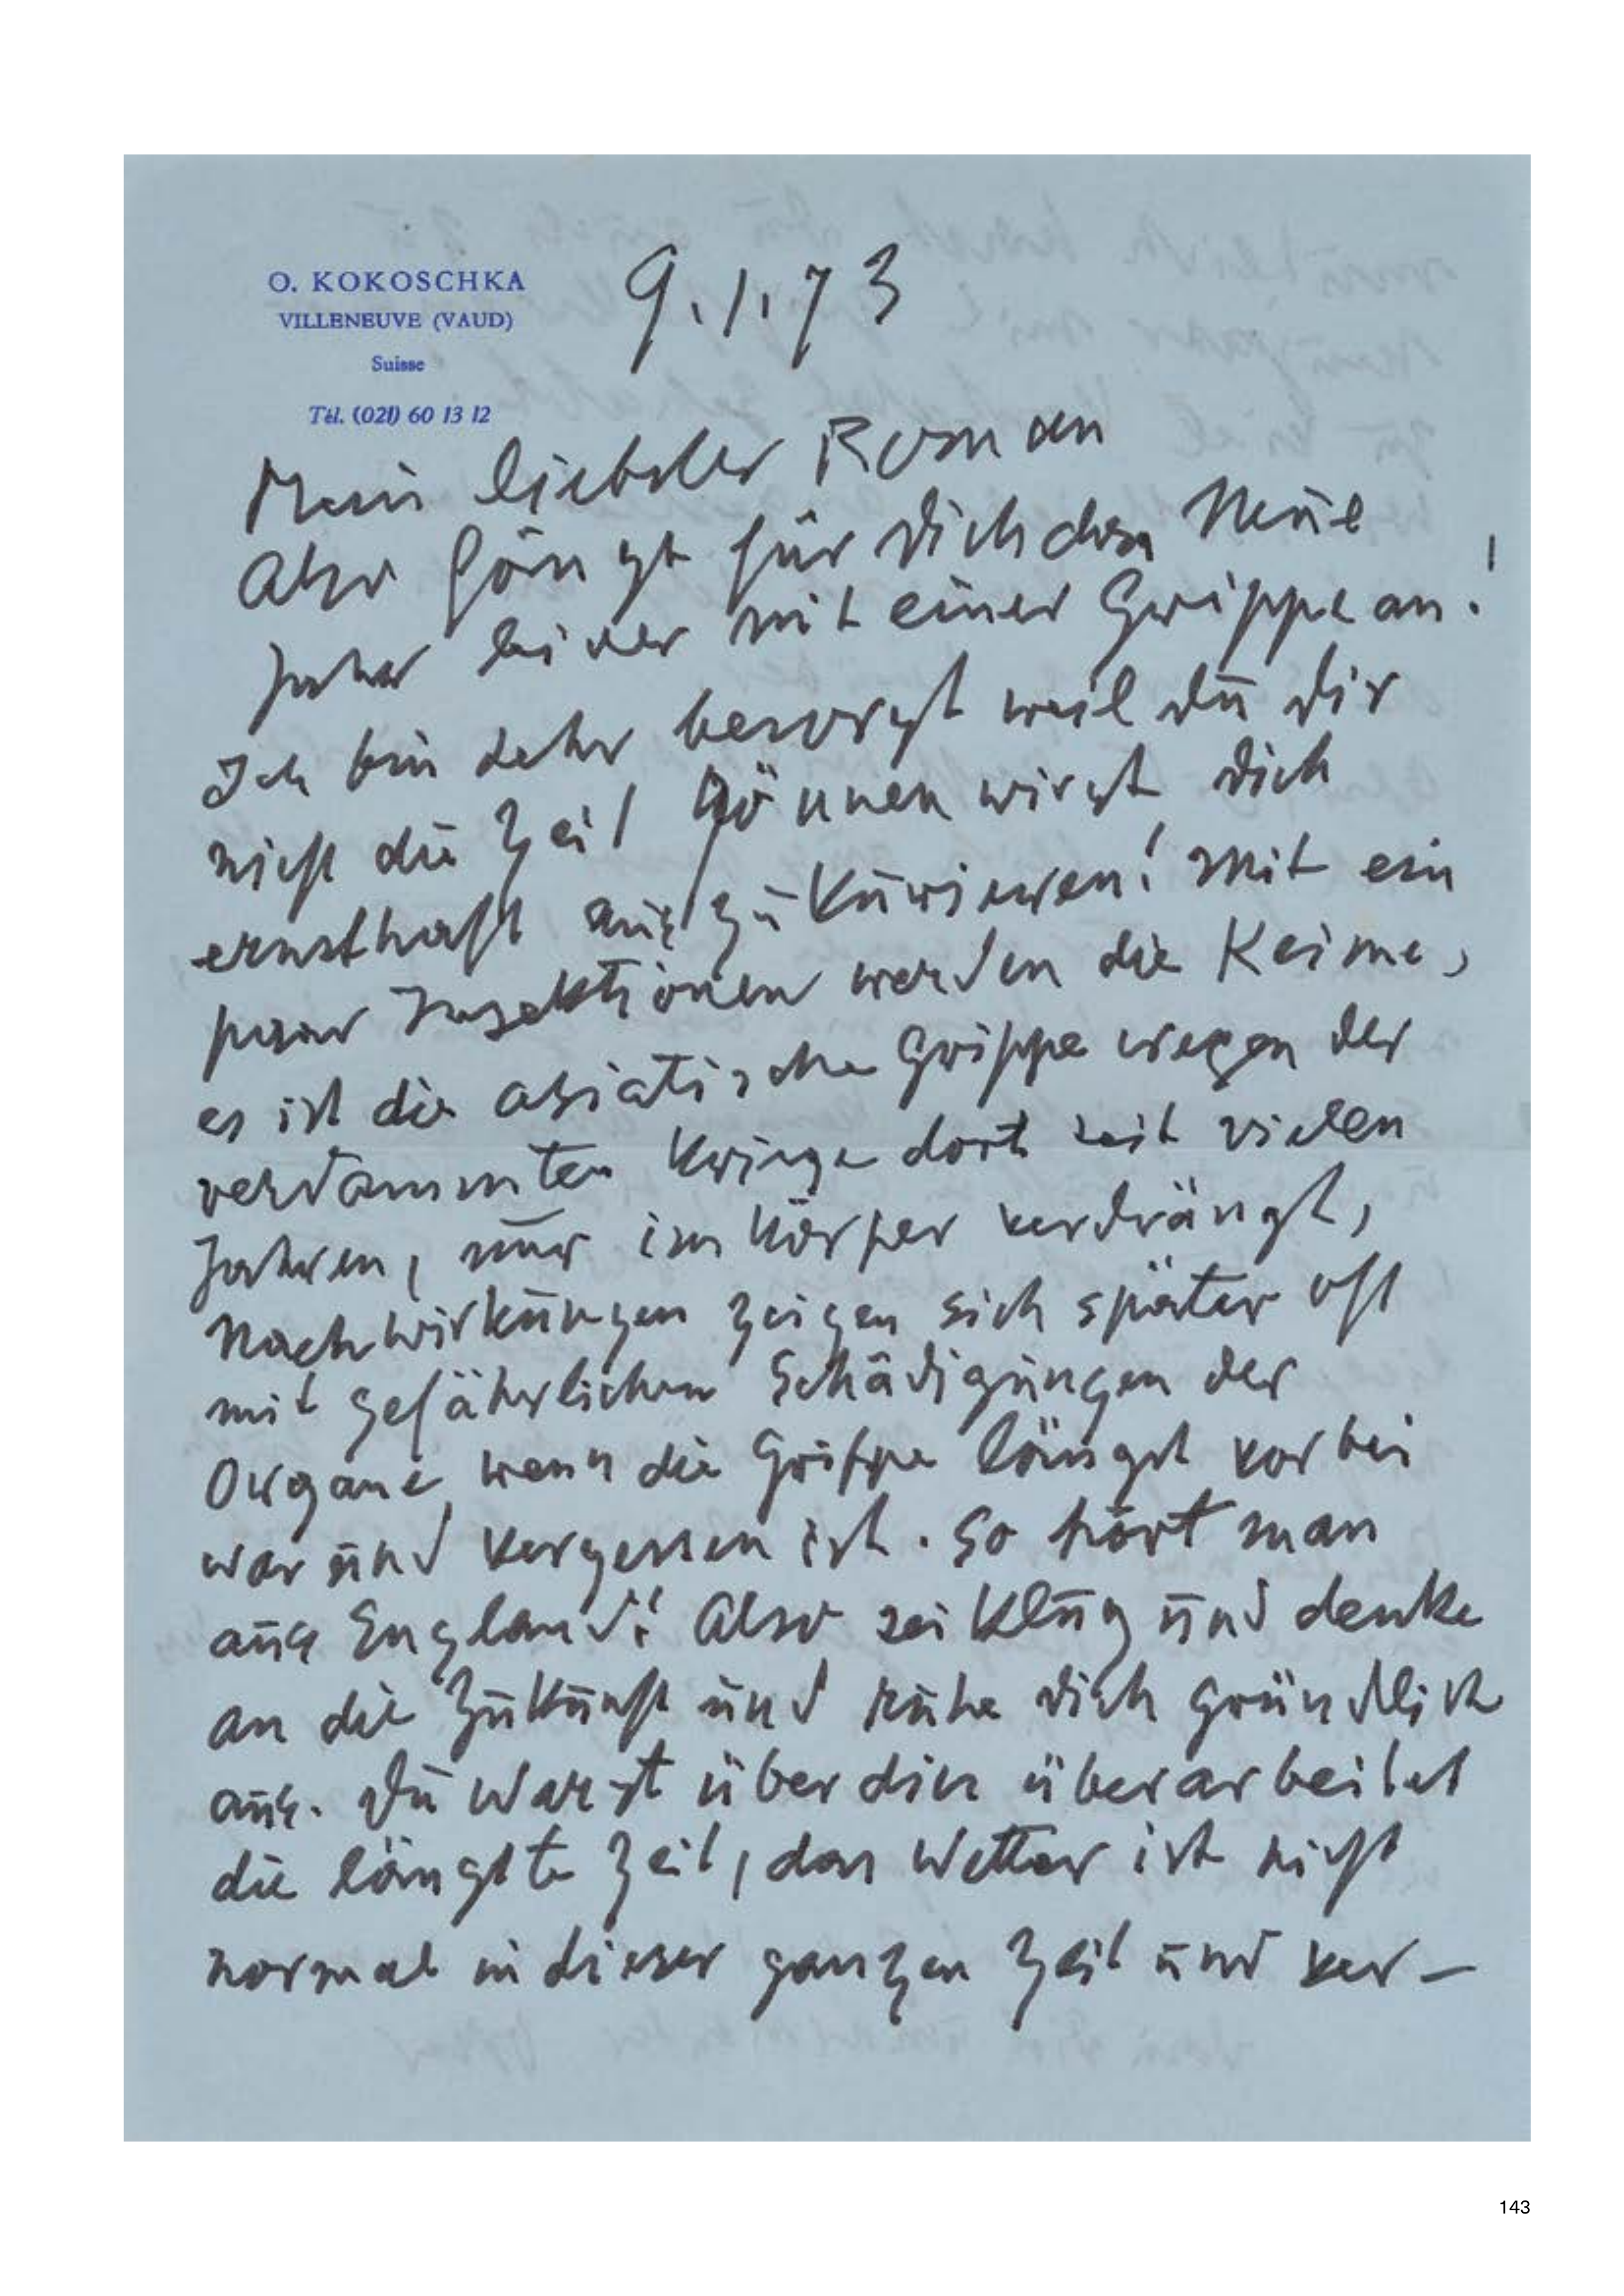 O. KOKOSCHKA
VILLENEUVE (VAUD)
Suisse
Tél. (021) 60 13 12
9.1.73
Mein liebster Roman
Also fängt für Dich das Neue
Jahr leider mit einer Grippe an!
Ich bin sehr besorgt weil Du Dir
nicht die Zeit gönnen wirst Dich
ernsthaft auszukurieren! Mit ein
paar Injektionen werden die Keime,
es ist die asiatische Grippe wegen der
verdammten Kriege dort seit vielen
Jahren, nur im Körper verdrängt,
Nachwirkungen zeigen sich später oft
mit gefährlichen Schädigungen der
Organe, wenn die Grippe längst vorbei
war und vergessen ist. So hört man
aus England! Also sei klug und denke
an die Zukunft und ruhe Dich gründlich
aus. Du warst überdies überarbeitet
die längste Zeit, das Wetter ist nicht
normal in dieser ganzen Zeit und ver-
143